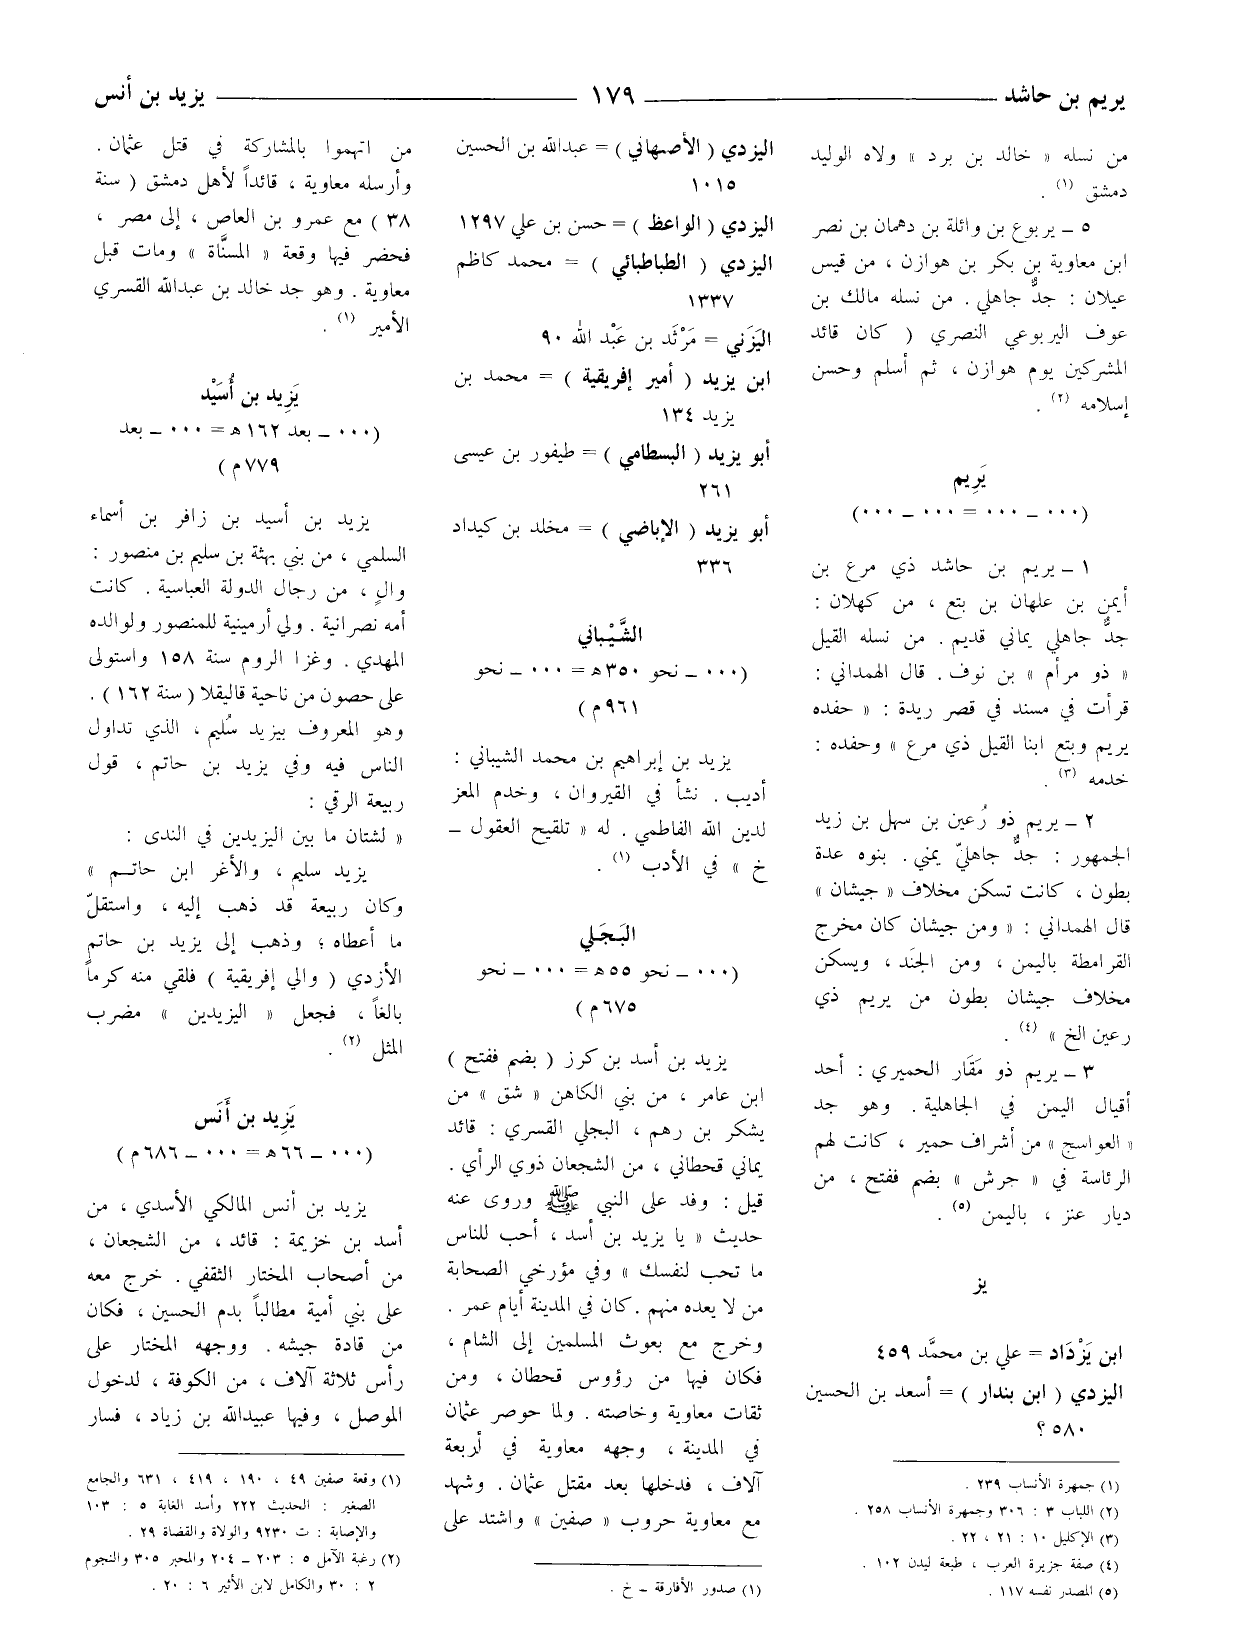 يريم بن حاشد ١٧٩ يزيد بن أنس
من نسله « خالد بن برد » ولاه الوليد
دمشق (١) .
٥ ـ يربوع بن وائلة بن دهمان بن نصر
ابن معاوية بن بكر بن هوازن ، من قيس
عيلان : جدٌّ جاهلي . من نسله مالك بن
عوف اليربوعي النصري ( كان قائد
المشركين يوم هوازن ، ثم أسلم وحسن
إسلامه (٢) .
يَرِيم
(٠٠٠ ـ ٠٠٠ = ٠٠٠ ـ ٠٠٠)
١ ـ يريم بن حاشد ذي مرع بن
أيمن بن علهان بن بتع ، من كهلان :
جدٌّ جاهلي يماني قديم . من نسله القيل
« ذو مرأم » بن نوف . قال الهمداني :
قرأت في مسند في قصر ريدة : « حفده
يريم وبتع ابنا القيل ذي مرع » وحفده :
خدمه (٣) .
٢ ـ يريم ذو رُعين بن سهل بن زيد
الجمهور : جدٌّ جاهليّ يمني . بنوه عدة
بطون ، كانت تسكن مخلاف « جيشان »
قال الهمداني : « ومن جيشان كان مخرج
القرامطة باليمن ، ومن الجنَد ، ويسكن
مخلاف جيشان بطون من يريم ذي
رعين الخ » (٤) .
٣ ـ يريم ذو مَقَار الحميري : أحد
أقيال اليمن في الجاهلية . وهو جد
« العواسج » من أشراف حمير ، كانت لهم
الرئاسة في « جرش » بضم ففتح ، من
ديار عنز ، باليمن (٥) .
يز
ابن يَزْدَاد = علي بن محمَّد ٤٥٩
اليزدي ( ابن بندار ) = أسعد بن الحسين
٥٨٠ ؟
(١) جمهرة الأنساب ٢٣٩ .
(٢) اللباب ٣ : ٣٠٦ وجمهرة الأنساب ٢٥٨ .
(٣) الإكليل ١٠ : ٢١ ، ٢٢ .
(٤) صفة جزيرة العرب ، طبعة ليدن ١٠٢ .
(٥) المصدر نفسه ١١٧ .
اليزدي ( الأصبهاني ) = عبدالله بن الحسين
١٠١٥
اليزدي ( الواعظ ) = حسن بن علي ١٢٩٧
اليزدي ( الطباطبائي ) = محمد كاظم
١٣٣٧
اليَزَني = مَرْثَد بن عَبْد الله ٩٠
ابن يزيد ( أمير إفريقية ) = محمد بن
يزيد ١٣٤
أبو يزيد ( البسطامي ) = طيفور بن عيسى
٢٦١
أبو يزيد ( الإباضي ) = مخلد بن كيداد
٣٣٦
الشَّيْباني
(٠٠٠ ـ نحو ٣٥٠ هـ = ٠٠٠ ـ نحو
٩٦١ م )
يزيد بن إبراهيم بن محمد الشيباني :
أديب . نشأ في القيروان ، وخدم المعز
لدين الله الفاطمي . له « تلقيح العقول ـ
خ » في الأدب (١) .
البَجَلي
(٠٠٠ ـ نحو ٥٥ هـ = ٠٠٠ ـ نحو
٦٧٥ م )
يزيد بن أسد بن كرز ( بضم ففتح )
ابن عامر ، من بني الكاهن « شق » من
يشكر بن رهم ، البجلي القسري : قائد
يماني قحطاني ، من الشجعان ذوي الرأي .
قيل : وفد على النبي ﷺ وروى عنه
حديث « يا يزيد بن أسد ، أحب للناس
ما تحب لنفسك » وفي مؤرخي الصحابة
من لا يعده منهم . كان في المدينة أيام عمر .
وخرج مع بعوث المسلمين إلى الشام ،
فكان فيها من رؤوس قحطان ، ومن
ثقات معاوية وخاصته . ولما حوصر عثمان
في المدينة ، وجهه معاوية في أربعة
آلاف ، فدخلها بعد مقتل عثمان . وشهد
مع معاوية حروب « صفين » واشتد على
(١) صدور الأفارقة ـ خ .
من اتهموا بالمشاركة في قتل عثمان .
وأرسله معاوية ، قائداً لأهل دمشق ( سنة
٣٨ ) مع عمرو بن العاص ، إلى مصر ،
فحضر فيها وقعة « المسنَّاة » ومات قبل
معاوية . وهو جد خالد بن عبدالله القسري
الأمير (١) .
يَزِيد بن أُسَيْد
(٠٠٠ ـ بعد ١٦٢ هـ = ٠٠٠ ـ بعد
٧٧٩ م )
يزيد بن أسيد بن زافر بن أسماء
السلمي ، من بني بهثة بن سليم بن منصور :
والٍ ، من رجال الدولة العباسية . كانت
أمه نصرانية . ولي أرمينية للمنصور ولوالده
المهدي . وغزا الروم سنة ١٥٨ واستولى
على حصون من ناحية قاليقلا ( سنة ١٦٢ ) .
وهو المعروف بيزيد سُليم ، الذي تداول
الناس فيه وفي يزيد بن حاتم ، قول
ربيعة الرقي :
« لشتان ما بين اليزيدين في الندى :
يزيد سليم ، والأغر ابن حاتـم »
وكان ربيعة قد ذهب إليه ، واستقلّ
ما أعطاه ؛ وذهب إلى يزيد بن حاتم
الأزدي ( والي إفريقية ) فلقي منه كرماً
بالغاً ، فجعل « اليزيدين » مضرب
المثل (٢) .
يَزِيد بن أَنَس
(٠٠٠ ـ ٦٦ هـ = ٠٠٠ ـ ٦٨٦ م )
يزيد بن أنس المالكي الأسدي ، من
أسد بن خزيمة : قائد ، من الشجعان ،
من أصحاب المختار الثقفي . خرج معه
على بني أمية مطالباً بدم الحسين ، فكان
من قادة جيشه . ووجهه المختار على
رأس ثلاثة آلاف ، من الكوفة ، لدخول
الموصل ، وفيها عبيدالله بن زياد ، فسار
(١) وقعة صفين ٤٩ ، ١٩٠ ، ٤١٩ ، ٦٣١ والجامع
الصغير : الحديث ٢٢٢ وأسد الغابة ٥ : ١٠٣
والإصابة : ت ٩٢٣٠ والولاة والقضاة ٢٩ .
(٢) رغبة الآمل ٥ : ٢٠٣ ـ ٢٠٤ والمحبر ٣٠٥ والنجوم
٢ : ٣٠ والكامل لابن الأثير ٦ : ٢٠ .